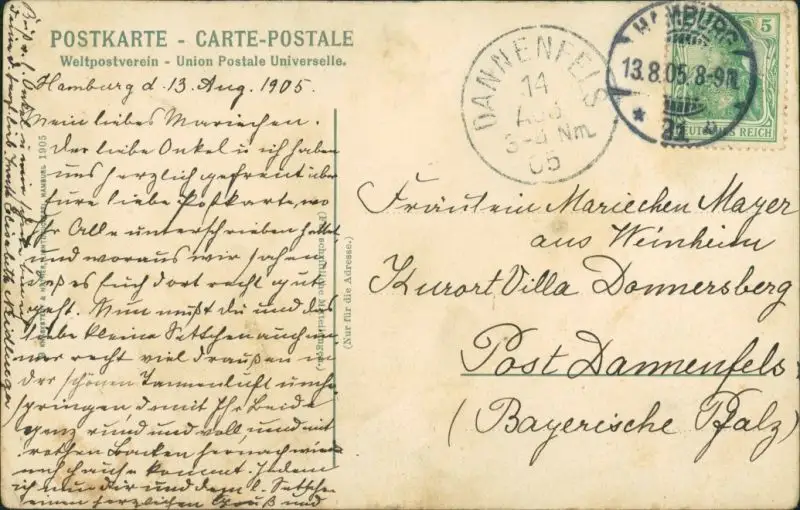 POSTKARTE - CARTE-POSTALE
Weltpostverein - Union Postale Universelle.
Hamburg d. 13. Aug. 1905.
Mein liebes Mariechen.
Der liebe Onkel u ich haben
uns herzlich gefreut über
Eure liebe Postkarte, wo
Ihr Alle unterschrieben hattet
und woraus wir sahen
daß es Euch dort recht gut
geht. Nun mußt du und das
liebe kleine Settchen auch im-
mer recht viel draußen in
der schönen Tannenluft umher
springen damit Ihr Beide
ganz rund und voll, und mit
rothen Backen hernach wieder
nach hause kommt. Indem
ich nun dir und dem l. Settchen
einen herzlichen Gruß und
Elisabeth
HAMBURG 1905
(Nur für die Adresse.)
DANNENFELS
14
AUG
3-4 Nm
05
HAMBURG
13.8.05. 8-9N.
5
DEUTSCHES REICH
Fräulein Mariechen Mayer
aus Weinheim
Kurort Villa Donnersberg
Post Dannenfels
(Bayerische Pfalz)